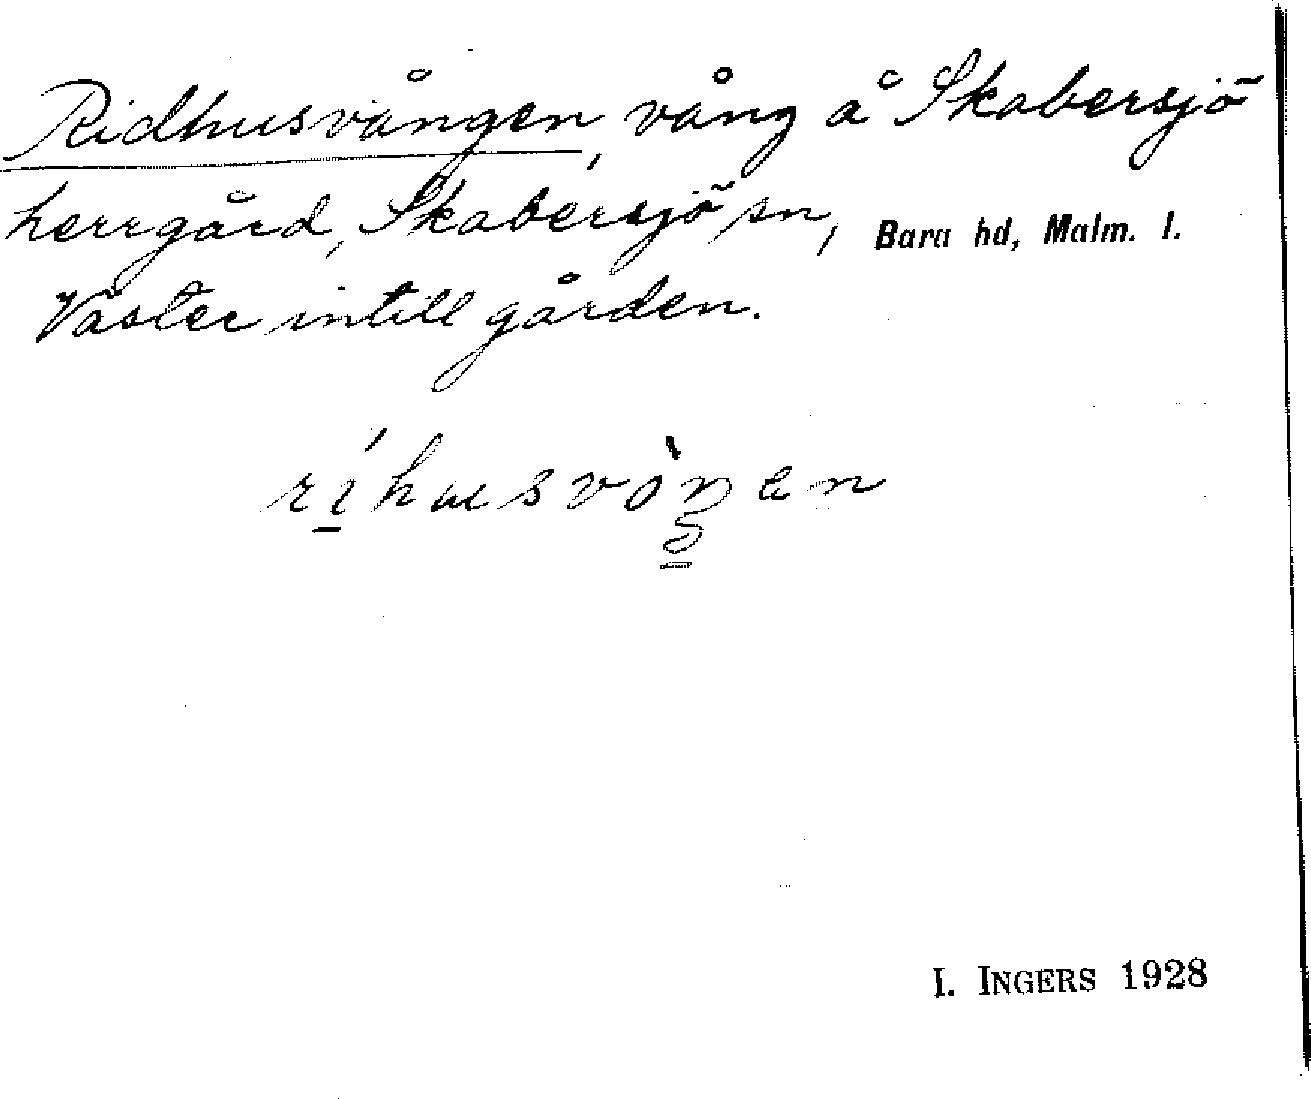 Ridhusvången, vång å Skabersjö
herrgård, Skabersjö sn, Bara hd, Malm. l.
Väster intill gården.
I. INGERS 1928